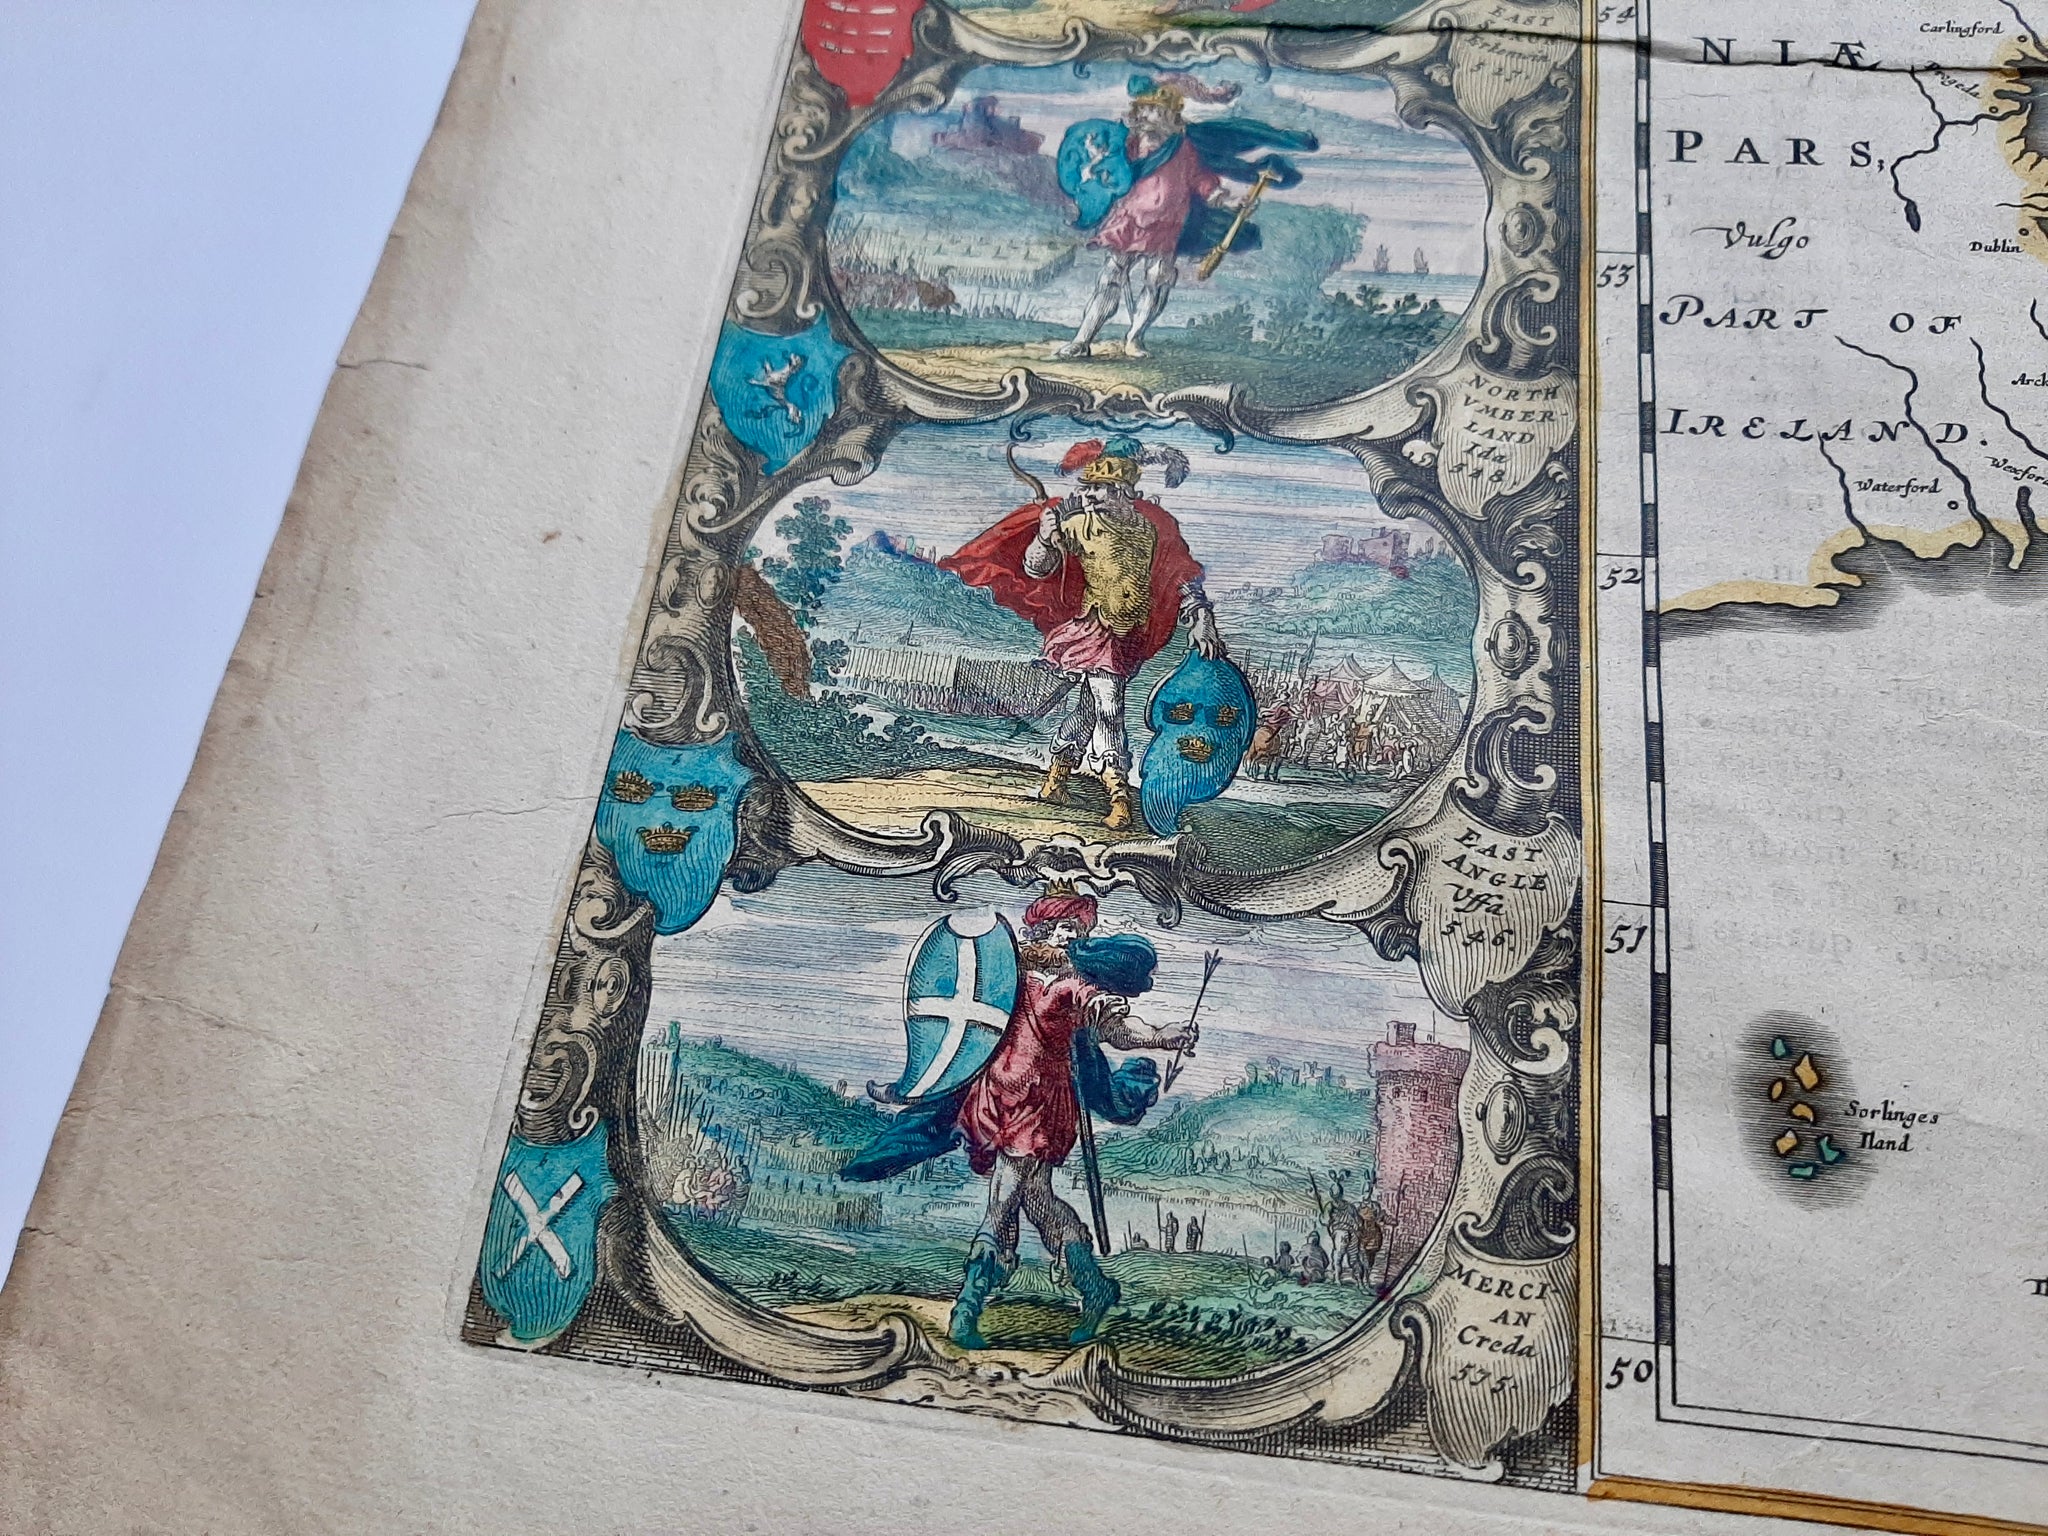 EAST
SAXON
Erkenwin
527.
NORTH
VMBER-
LAND
Ida
548
EAST
ANGLE
Uffa
546.
MERCI-
AN
Creda
575.
54
53
52
51
50
NIÆ
PARS,
Vulgo
PART OF
IRELAND.
Carlingford
Dublin
Arck
Waterford
Wexford
Sorlinges
Iland